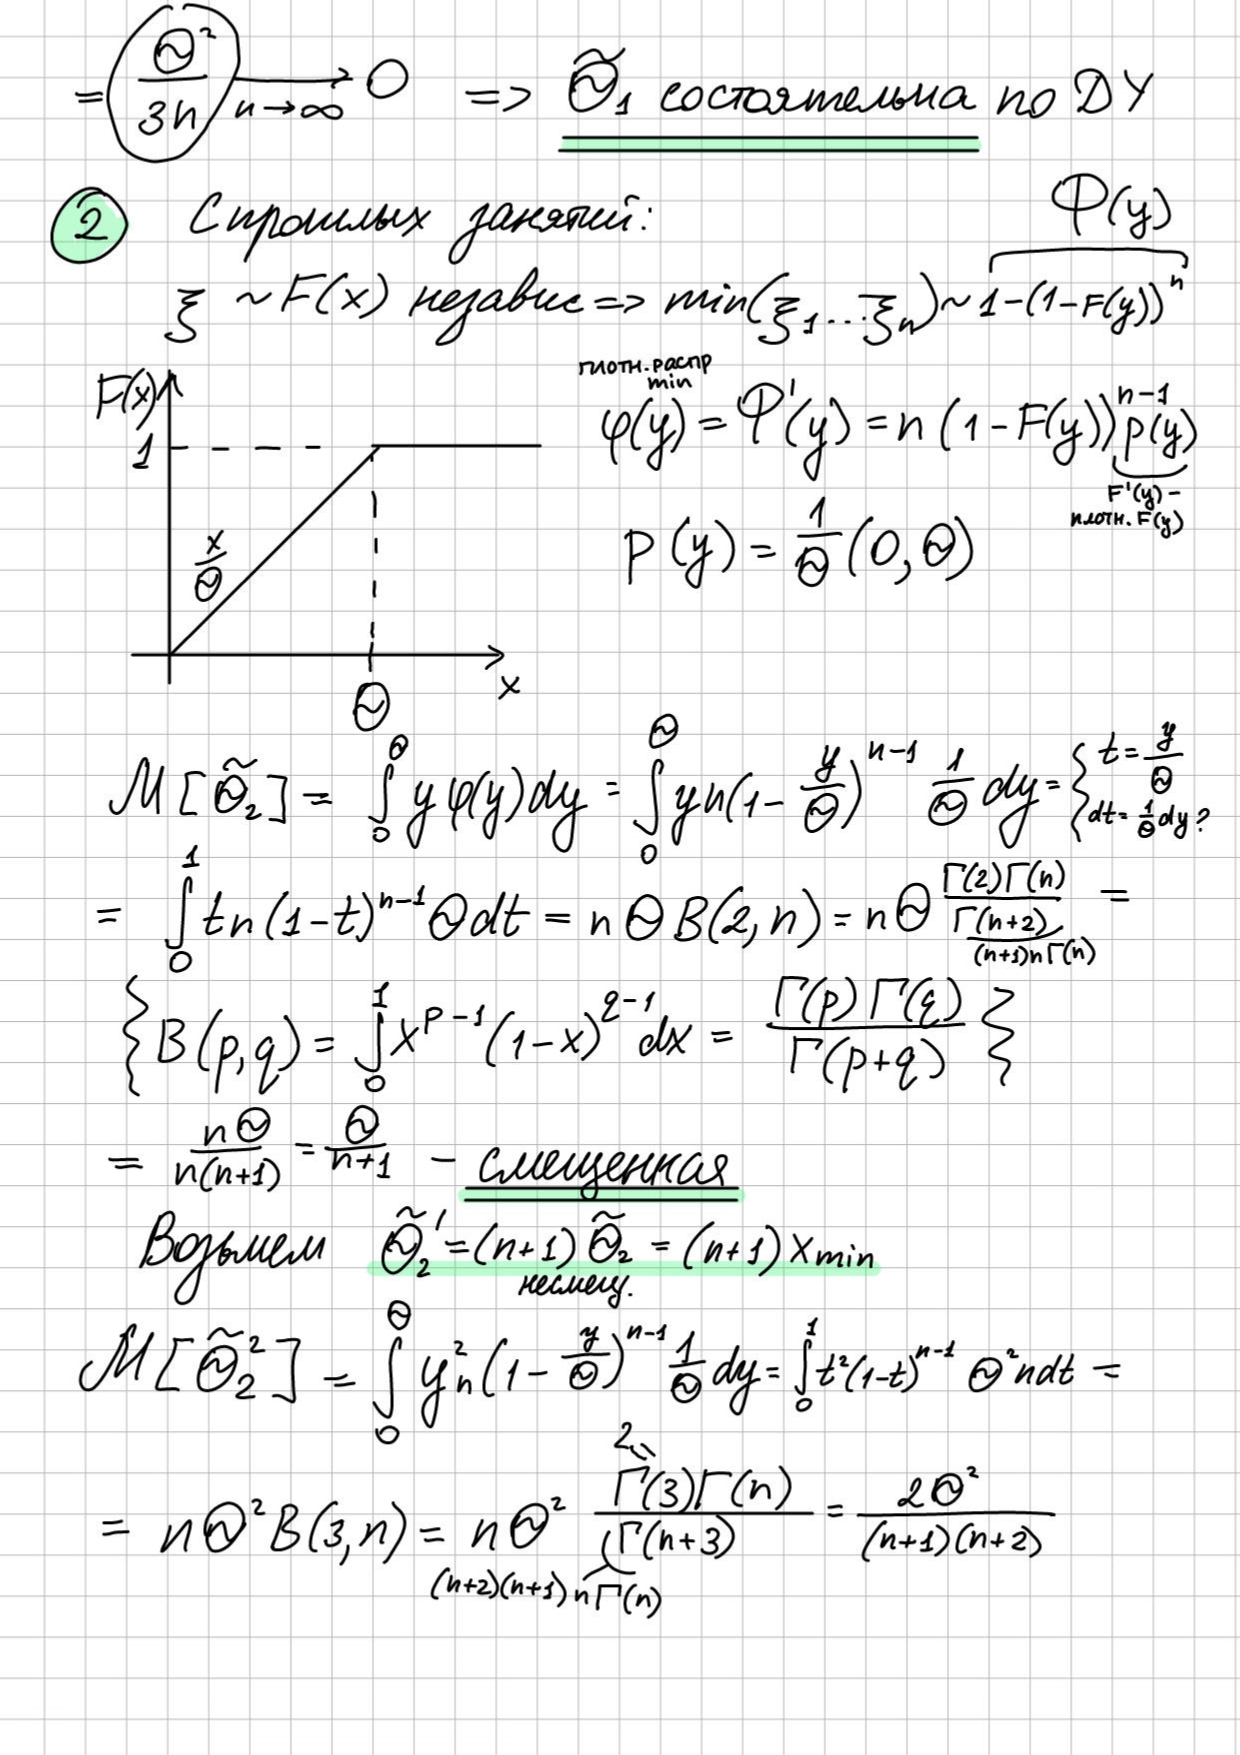 = Θ²/3n →_{n→∞} 0 => Θ̃₁ состоятельна по ДУ
2 С прошлых занятий: Φ(y)
ξ ~ F(x) независ => min(ξ₁...ξₙ) ~ 1-(1-F(y))ⁿ
плотн. распр
min
φ(y) = Φ'(y) = n(1-F(y))ⁿ⁻¹ p(y)
F'(y) -
плотн. F(y)
p(y) = 1/Θ (0, Θ)
F(x)
1
x/Θ
Θ
x
M[Θ̃₂] = ∫₀^Θ yφ(y)dy = ∫₀^Θ yn(1- y/Θ)ⁿ⁻¹ 1/Θ dy = {t = y/Θ
dt = 1/Θ dy}
= ∫₀¹ tn(1-t)ⁿ⁻¹ Θdt = nΘB(2,n) = nΘ Γ(2)Γ(n)/Γ(n+2) =
(n+1)nΓ(n)
{B(p,q) = ∫₀¹ x^{p-1}(1-x)^{q-1}dx = Γ(p)Γ(q)/Γ(p+q)}
= nΘ/n(n+1) = Θ/n+1 - смещенная
Возьмем Θ̃₂' = (n+1)Θ̃₂ = (n+1)x min
несмещ.
M[Θ̃₂²] = ∫₀^Θ y²n(1- y/Θ)ⁿ⁻¹ 1/Θ dy = ∫₀¹ t²(1-t)ⁿ⁻¹ Θ²ndt =
2 =
= nΘ²B(3,n) = nΘ² Γ(3)Γ(n)/Γ(n+3) = 2Θ²/(n+1)(n+2)
(n+2)(n+1)nΓ(n)